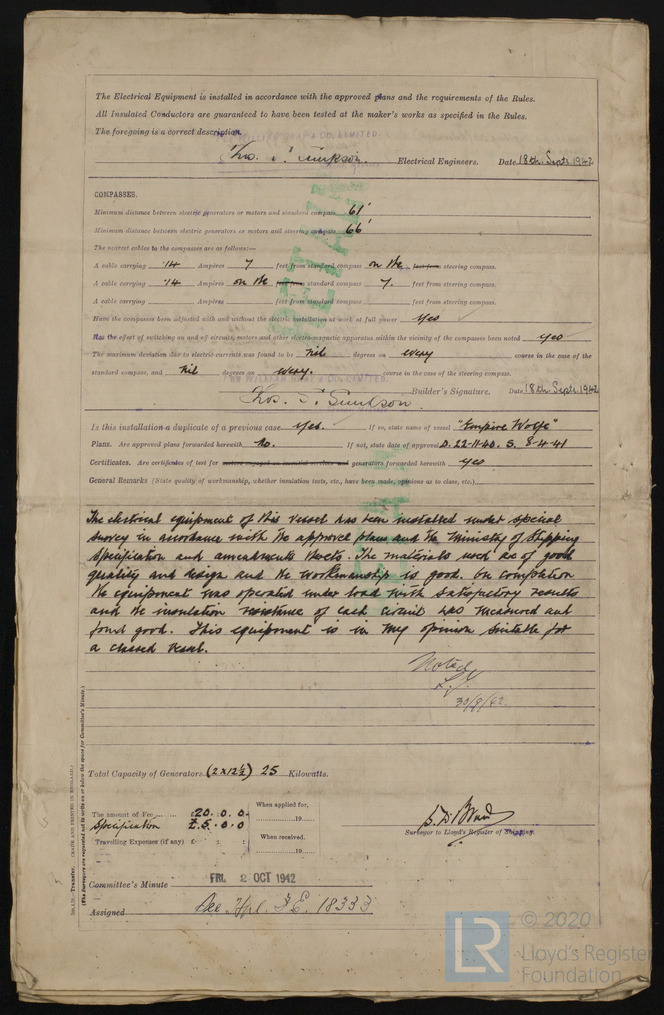 The Electrical Equipment is installed in accordance with the approved plans and the requirements of the Rules.
All Insulated Conductors are guaranteed to have been tested at the maker's works as specified in the Rules.
The foregoing is a correct description.
CO. LIMITED.
Thos. Electrical Engineers. Date 18th Septr 1942
COMPASSES.
Minimum distance between electric generators or motors and standard compass 61'
Minimum distance between electric generators or motors and steering compass 66'
The nearest cables to the compasses are as follows:—
A cable carrying .14 Ampères 7 feet from standard compass on the feet from steering compass.
A cable carrying .14 Ampères on the feet from standard compass 7. feet from steering compass.
A cable carrying Ampères feet from standard compass feet from steering compass.
Have the compasses been adjusted with and without the electric installation at work at full power Yes
Has the effect of switching on and off circuits, motors and other electro-magnetic apparatus within the vicinity of the compasses been noted yes
The maximum deviation due to electric currents was found to be nil degrees on every course in the case of the
standard compass, and nil degrees on every. course in the case of the steering compass.
FOR WILLIAM & CO. LIMITED.
Thos. Builder's Signature. Date 18th Septr 1942
Is this installation a duplicate of a previous case Yes. If so, state name of vessel "Empire Wolfe"
Plans. Are approved plans forwarded herewith No. If not, state date of approval D. 22-11-40. S. 8-4-41
Certificates. Are certificates of test for motors engaged on essential services and generators forwarded herewith yes
General Remarks (State quality of workmanship, whether insulation tests, etc., have been made, opinions as to class, etc.)
The electrical equipment of this vessel has been installed under special
survey in accordance with the approved plans and the Ministry of Shipping
Specification and amendments thereto. The materials used are of good
quality and design and the workmanship is good. On completion
the equipment was operated under load with satisfactory results
and the insulation resistance of each circuit was measured and
found good. This equipment is in my opinion suitable for
a classed vessel.
Noted
30/9/42
Total Capacity of Generators (2 x 12½) 25 Kilowatts.
The amount of Fee £20. 0. 0. When applied for, 19
Specification £5. 0. 0
Travelling Expenses (if any) £ : : When received, 19
Surveyor to Lloyd's Register of Shipping.
Committee's Minute FRI. 2 OCT 1942
Assigned See Hpl. F.E. 18333
Transfer. (MADE AND PRINTED IN ENGLAND.)
(The Surveyors are requested not to write on or below the space for Committee's Minute.)
LR © 2020
Lloyd's Register
Foundation